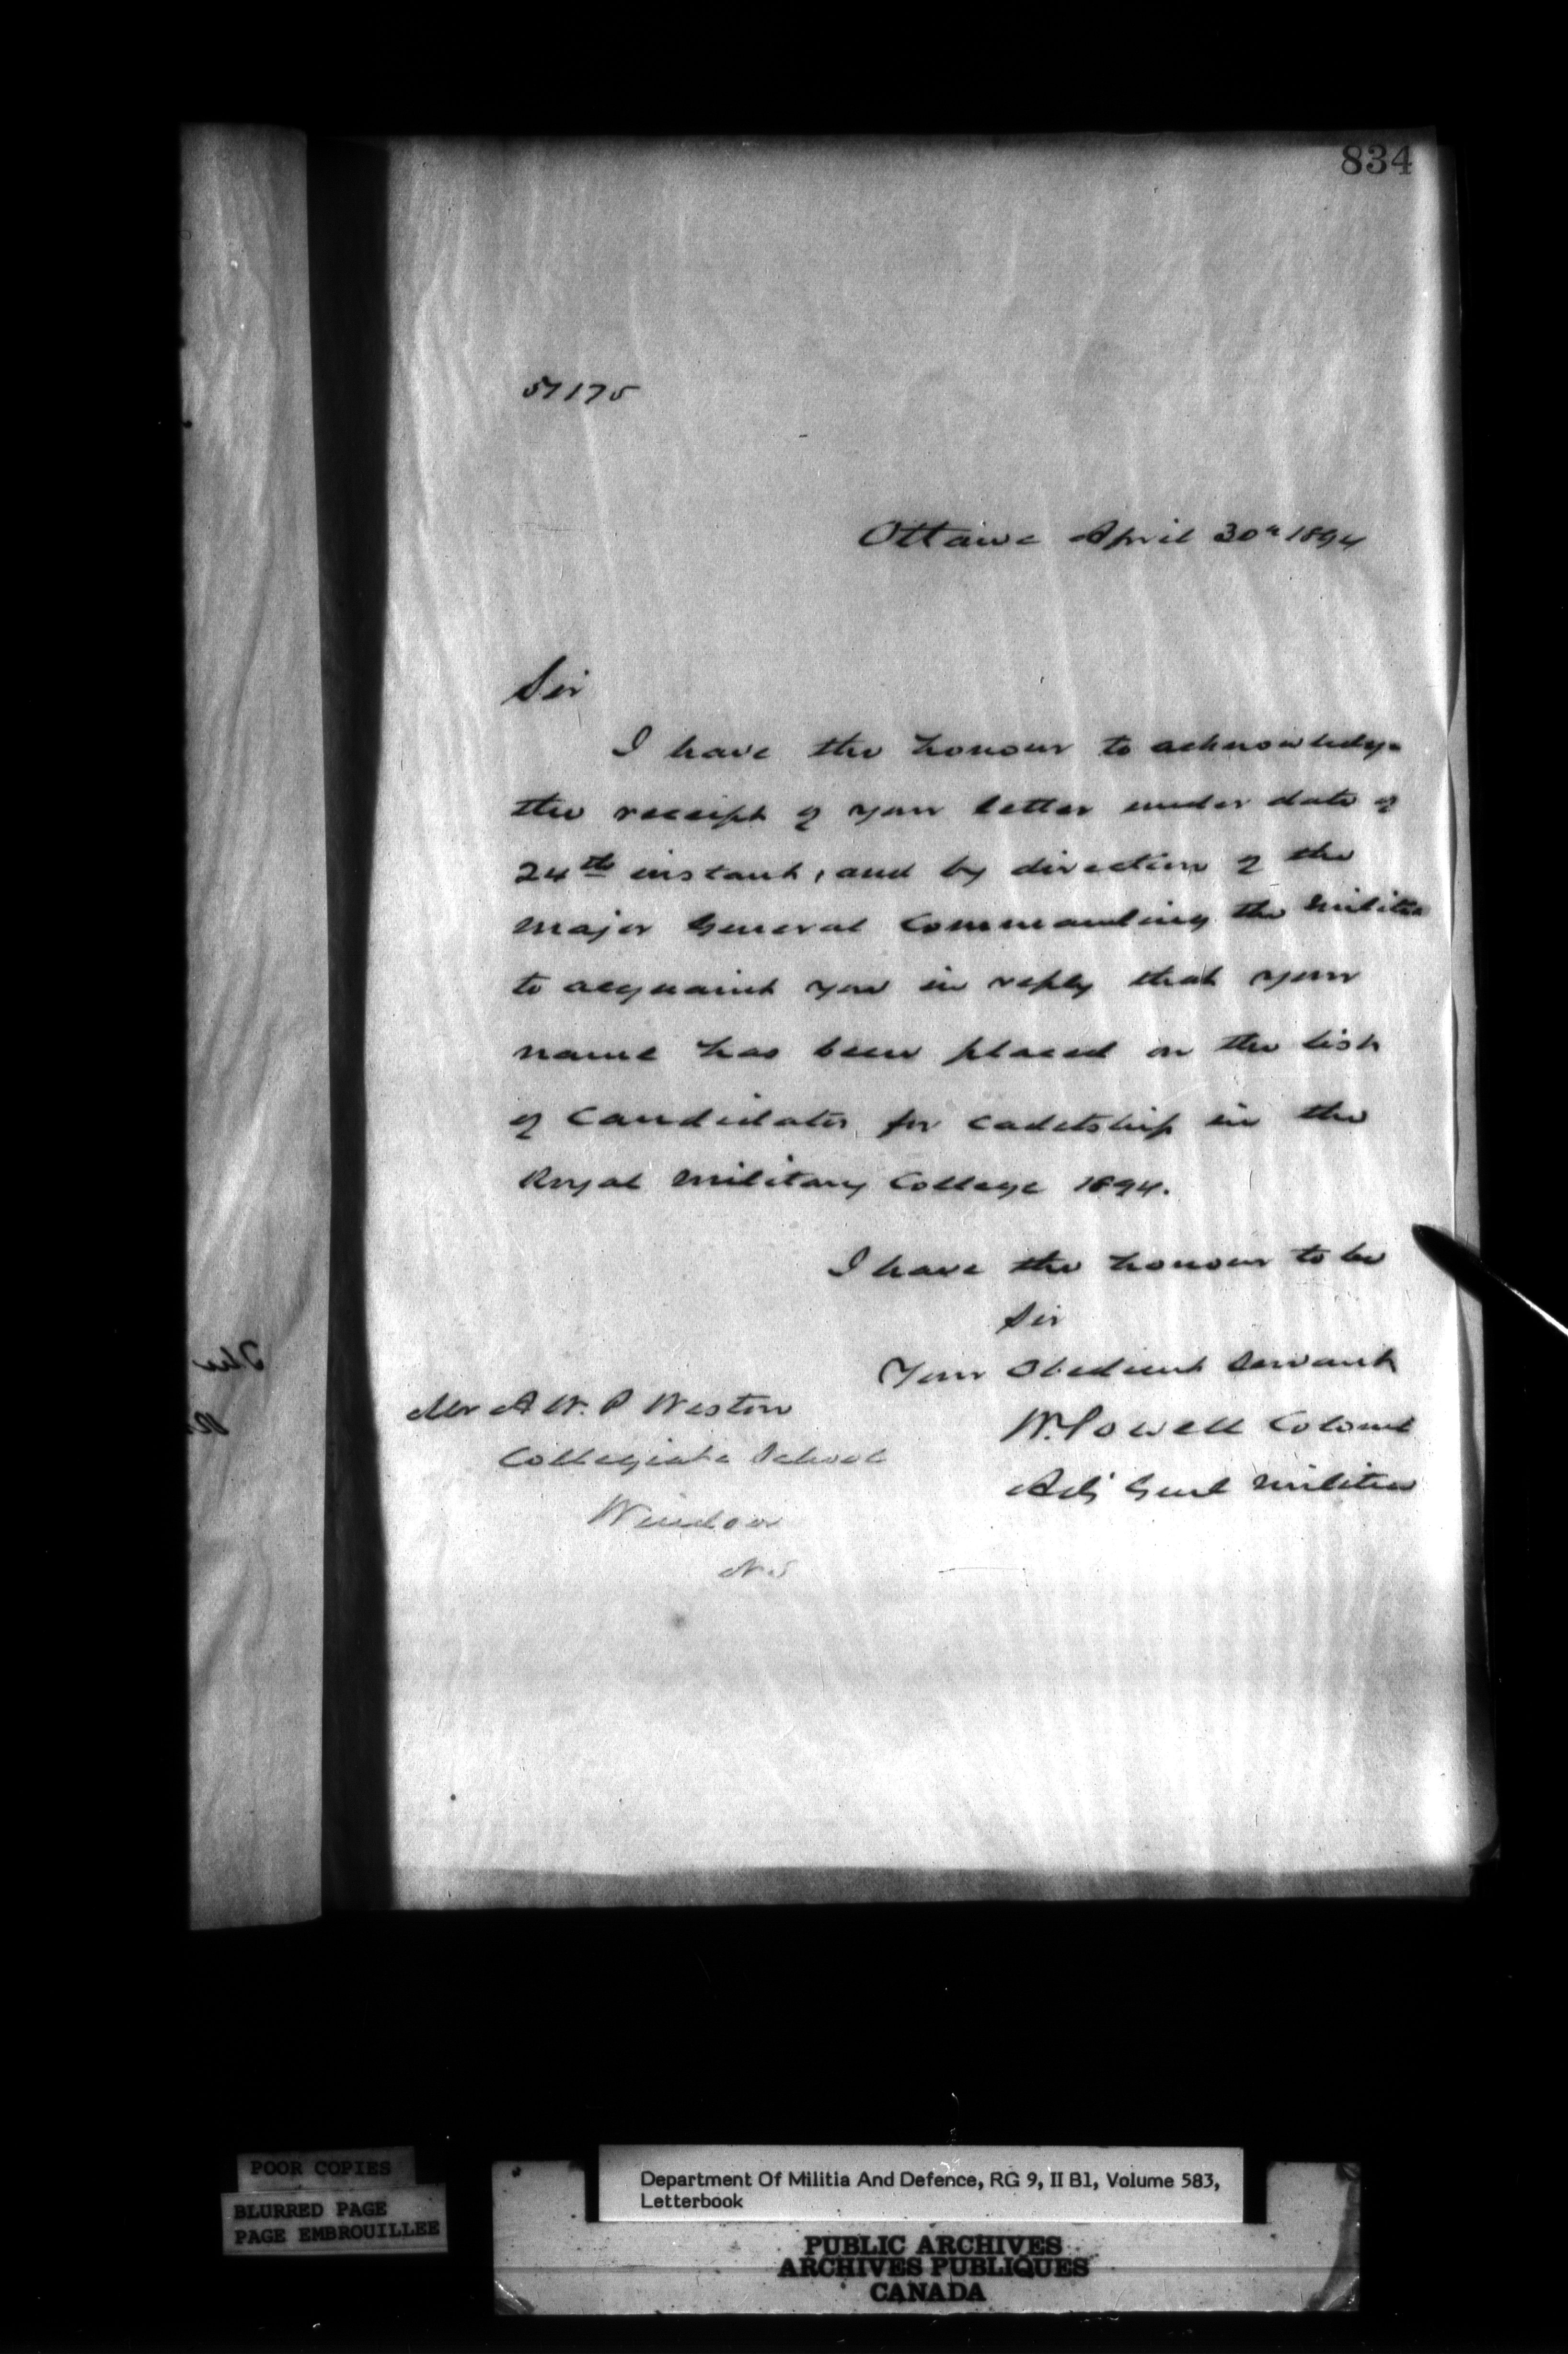 834
57175
Ottawa April 30th 1894
Sir
I have the honour to acknowledge
the receipt of your letter under date of
24th instant, and by direction of the
Major General Commanding the Militia
to acquaint you in reply that your
name has been placed on the list
of Candidates for cadetship in the
Royal Military College 1894.
I have the honour to be
Sir
Your Obedient Servant
W. Powell Colonel
Adj Genl Militia
Mr A W. P Weston
Collegiate School
Windsor
N S
POOR COPIES
BLURRED PAGE
PAGE EMBROUILLEE
Department Of Militia And Defence, RG 9, II B1, Volume 583,
Letterbook
PUBLIC ARCHIVES
ARCHIVES PUBLIQUES
CANADA